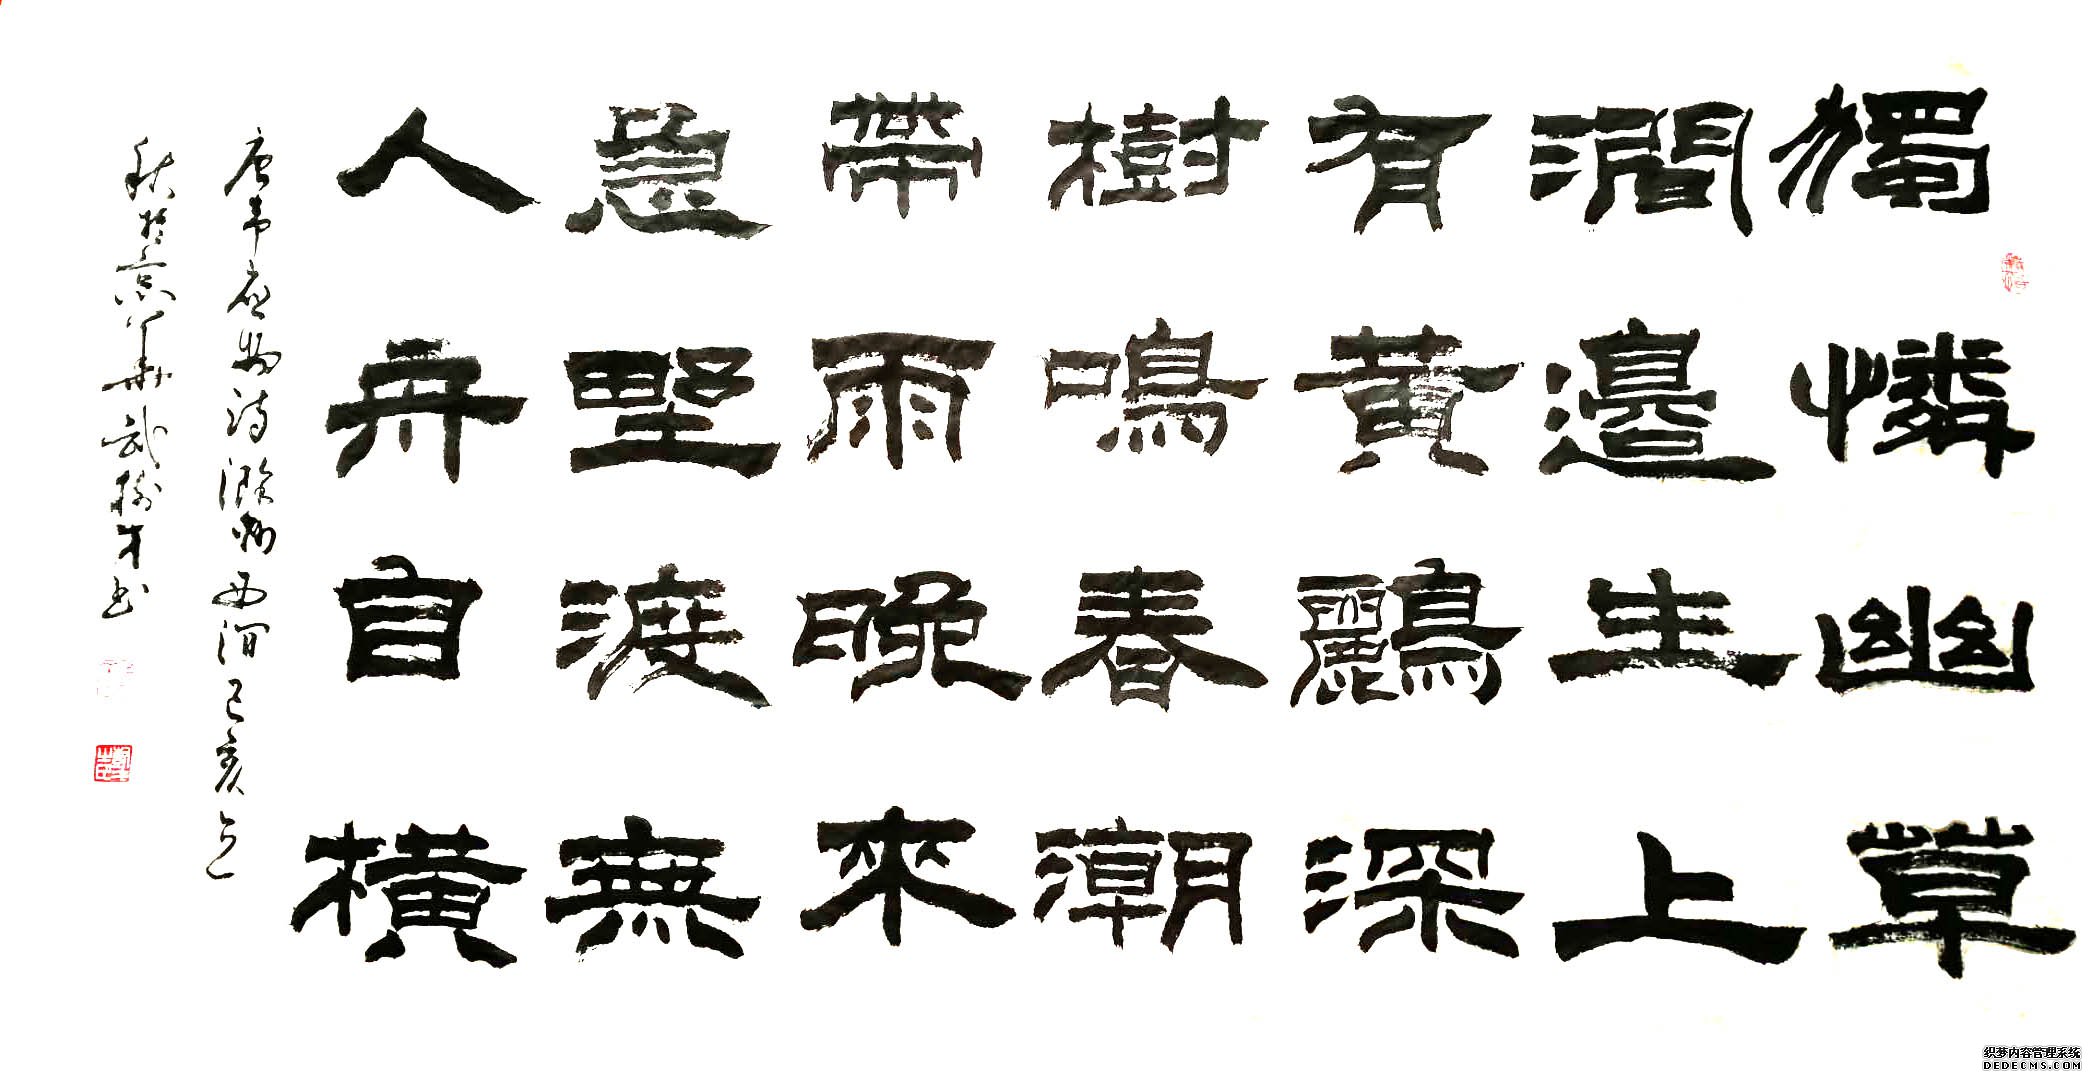 獨憐幽草
澗邊生上
有黃鸝深
樹鳴春潮
帶雨晚來
急野渡無
人舟自橫
唐韦应物诗滁州西涧己亥之
秋於京華武樹书
织梦内容管理系统
DEDECMS.COM